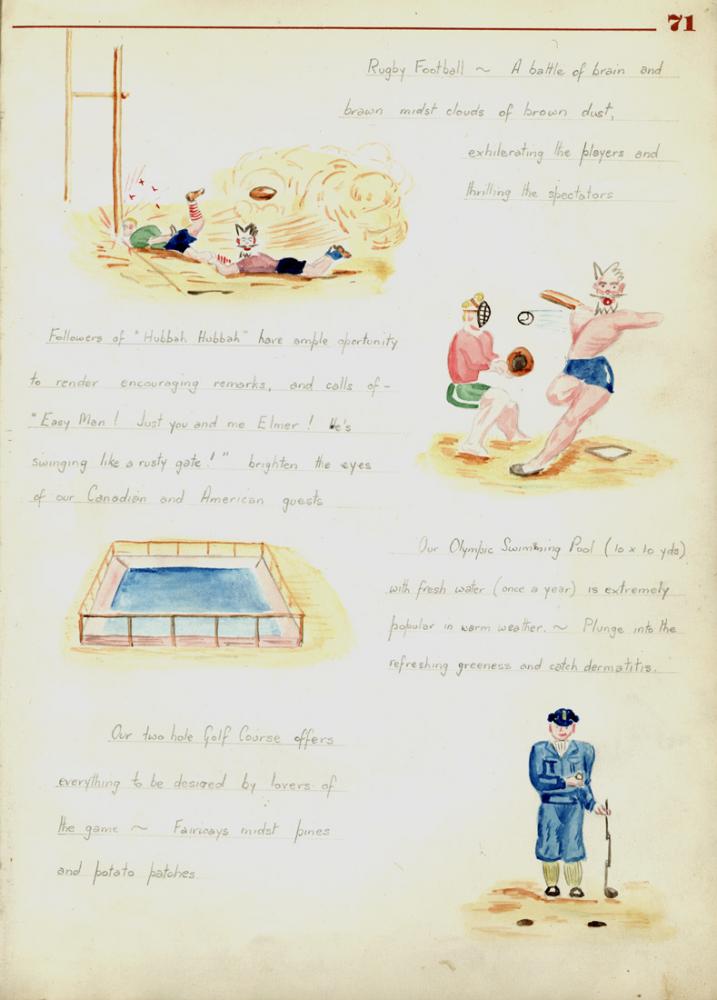 71
Rugby Football ~ A battle of brain and
brawn midst clouds of brown dust,
exhilerating the players and
thrilling the spectators
Followers of "Hubbah Hubbah" have ample oportunity
to render encouraging remarks, and calls of -
"Easy Man! Just you and me Elmer! He's
swinging like a rusty gate!" brighten the eyes
of our Canadian and American guests
Our Olympic Swimming Pool (10 x 10 yds)
with fresh water (once a year) is extremely
popular in warm weather. ~ Plunge into the
refreshing greeness and catch dermatitis.
Our two hole Golf Course offers
everything to be desired by lovers of
the game ~ Fairways midst pines
and potato patches